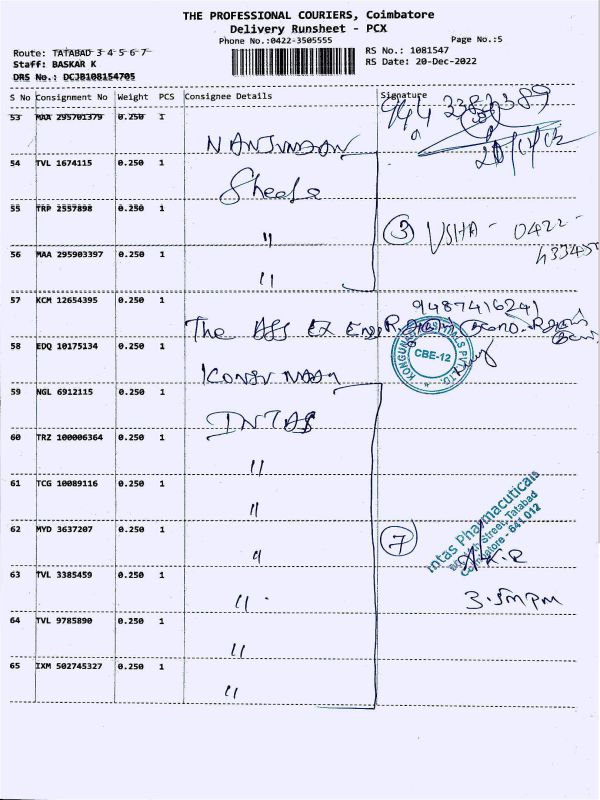 THE PROFESSIONAL COURIERS, Coimbatore
Delivery Runsheet - PCX
Phone No.:0422-3505555
Page No.:5
Route: TATABAD 3 4 5 6 7
RS No.: 1081547
Staff: BASKAR K
RS Date: 20-Dec-2022
DRS No.: DCJB108154705
S No Consignment No Weight PCS Consignee Details Signature
53 MAA 295701379 0.250 1
54 TVL 1674115 0.250 1
55 TRP 2557898 0.250 1 "
3 USHA - 0422-
56 MAA 295903397 0.250 1 "
57 KCM 12654395 0.250 1
9487416241
The
58 EDQ 10175134 0.250 1
CBE-12
59 NGL 6912115 0.250 1 INTAS
60 TRZ 100006364 0.250 1 "
61 TCG 10089116 0.250 1 "
62 MYD 3637207 0.250 1 "
7
Intas Pharmacuticals
Street, Tatabad
Coimbatore - 641 012
63 TVL 3385459 0.250 1 "
64 TVL 9785890 0.250 1 "
65 IXM 502745327 0.250 1 "